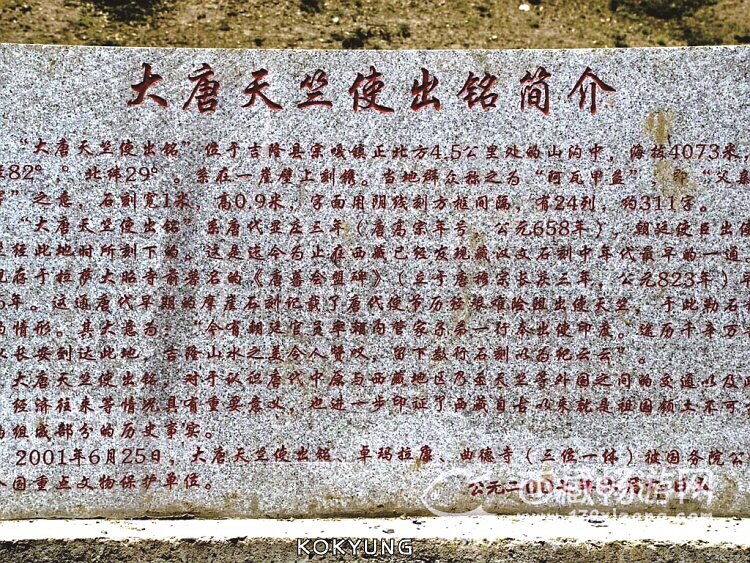 大唐天竺使出铭简介
“大唐天竺使出铭”位于吉隆县宗嘎镇正北方4.5公里处的山沟中，海拔4073米，
82°。北纬29°。系在一崖壁上刻镌。当地群众称之为“阿瓦甲英”，即“父亲
”之意，石刻宽1米，高0.9米，字面用阴线刻方框间隔，有24列，约311字。
“大唐天竺使出铭”系唐代显庆三年（唐高宗年号，公元658年），朝廷使臣出使
途经此地时所刻下的。这是迄今为止在西藏已经发现藏以文石刻中年代最早的一通
现存于拉萨大昭寺前著名的《唐蕃会盟碑》（立于唐穆宗长庆三年，公元823年）
年。这通唐代早期的摩崖石刻记载了唐代使节历经艰难险阻出使天竺，于此勒石
的情形。其大意为：“今有朝廷官员率领内管家子弟一行奉出使印度。途历千年万
从长安到达此地，吉隆山水之美令人赞叹，留下数行石刻以为纪云云”。
大唐天竺使出铭，对于认识唐代中原与西藏地区乃至天竺等外国之间的交通以及
经济往来等情况具有重要意义，也进一步印证了西藏自古以来就是祖国领土不可
的组成部分的历史事实。
2001年6月25日，大唐天竺使出铭、卓玛拉康、曲德寺（三位一体）被国务院公
全国重点文物保护单位。
公元二00七年
KOKYUNG